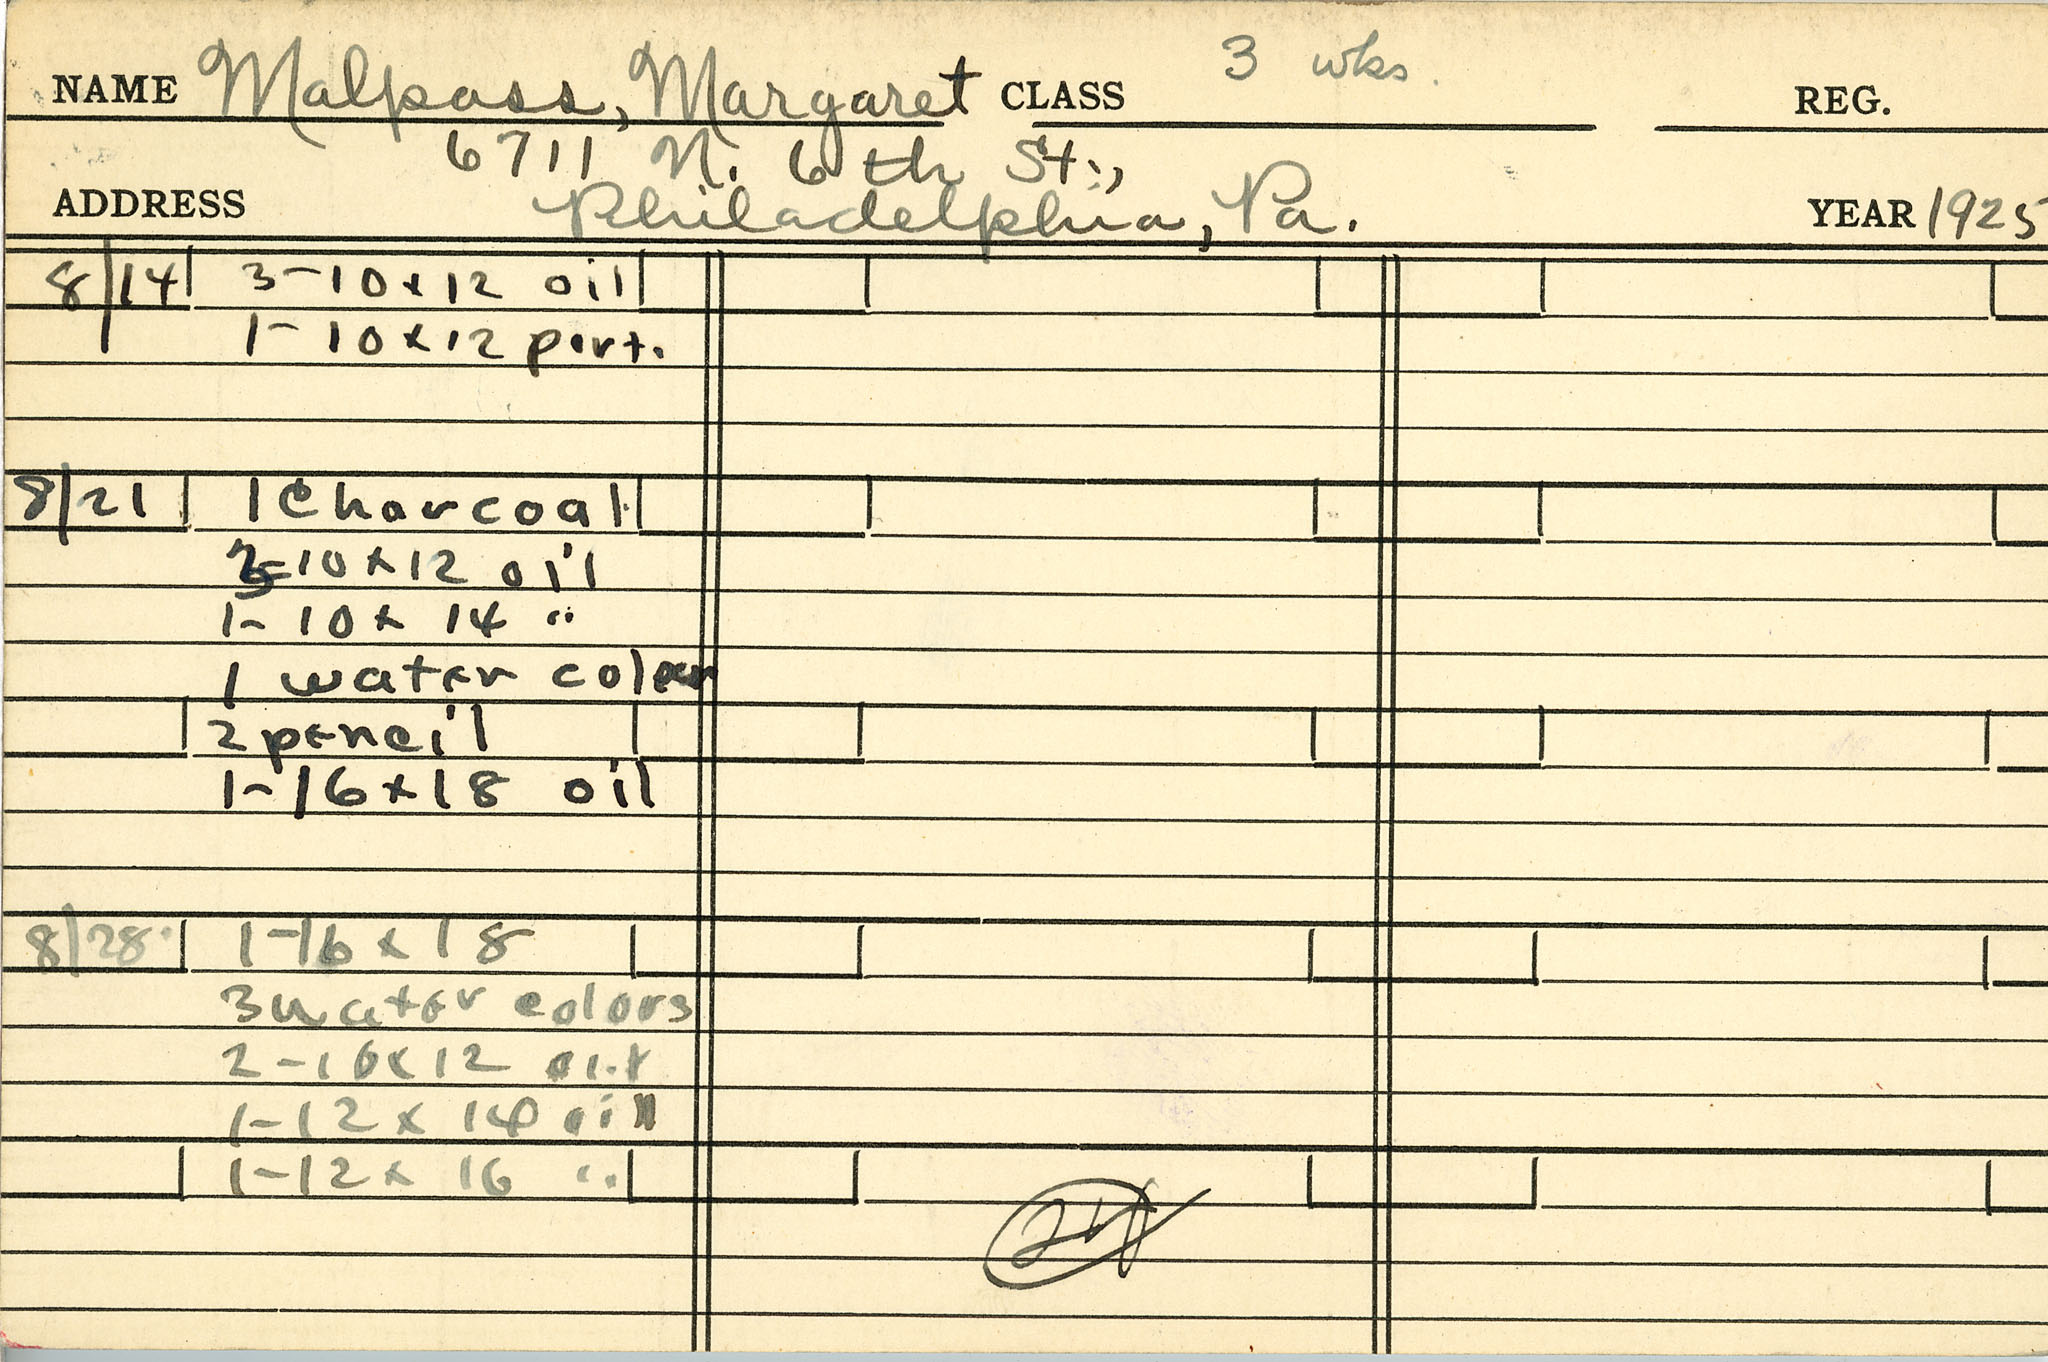 NAME Malpass, Margaret CLASS 3 wks. REG.
6711 N. 6th St.,
ADDRESS Philadelphia, Pa. YEAR 1925
8/14 3-10x12 oil
1-10x12 port.
8/21 1 Charcoal
3-10x12 oil
1-10x14 "
1 water color
2 pencil
1-16x18 oil
8/28 1-16x18
3 water colors
2-10x12 oil
1-12x14 oil
1-12x16 "
24